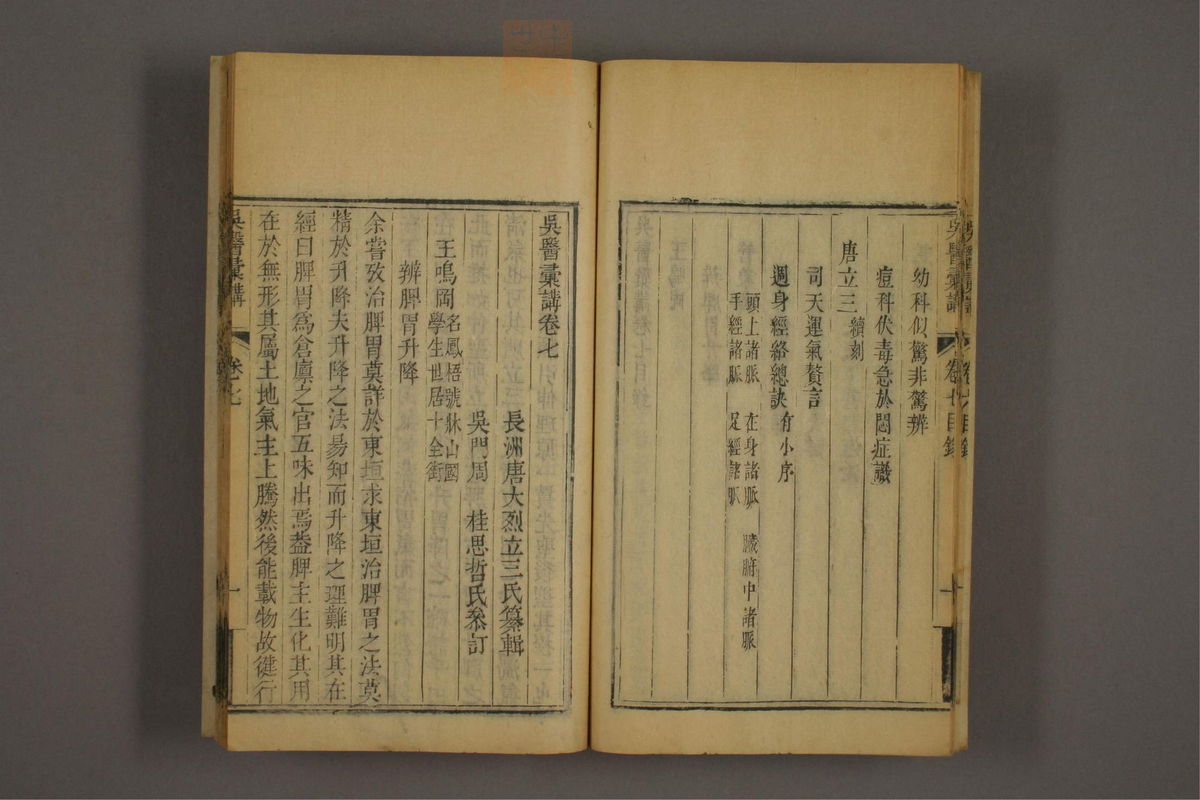 吳醫彙講
卷七目錄
幼科似驚非驚辨
痘科伏毒急於悶症議
唐立三續刻
司天運氣贅言
週身經絡總訣有小序
頭上諸脈 在身諸脈 臟腑中諸脈
手經諸脈 足經諸脈
吳醫彙講卷七
長洲唐大烈立三氏纂輯
吳門周 桂思哲氏叅訂
王鳴岡名鳳梧號牀山國
學生世居十全街
辨脾胃升降
余嘗攷治脾胃莫詳於東垣求東垣治脾胃之法莫
精於升降夫升降之法易知而升降之理難明其在
經曰脾胃爲倉廩之官五味出焉葢脾主生化其用
在於無形其屬土地氣主上騰然後能載物故健行
吳醫彙講
卷七
一